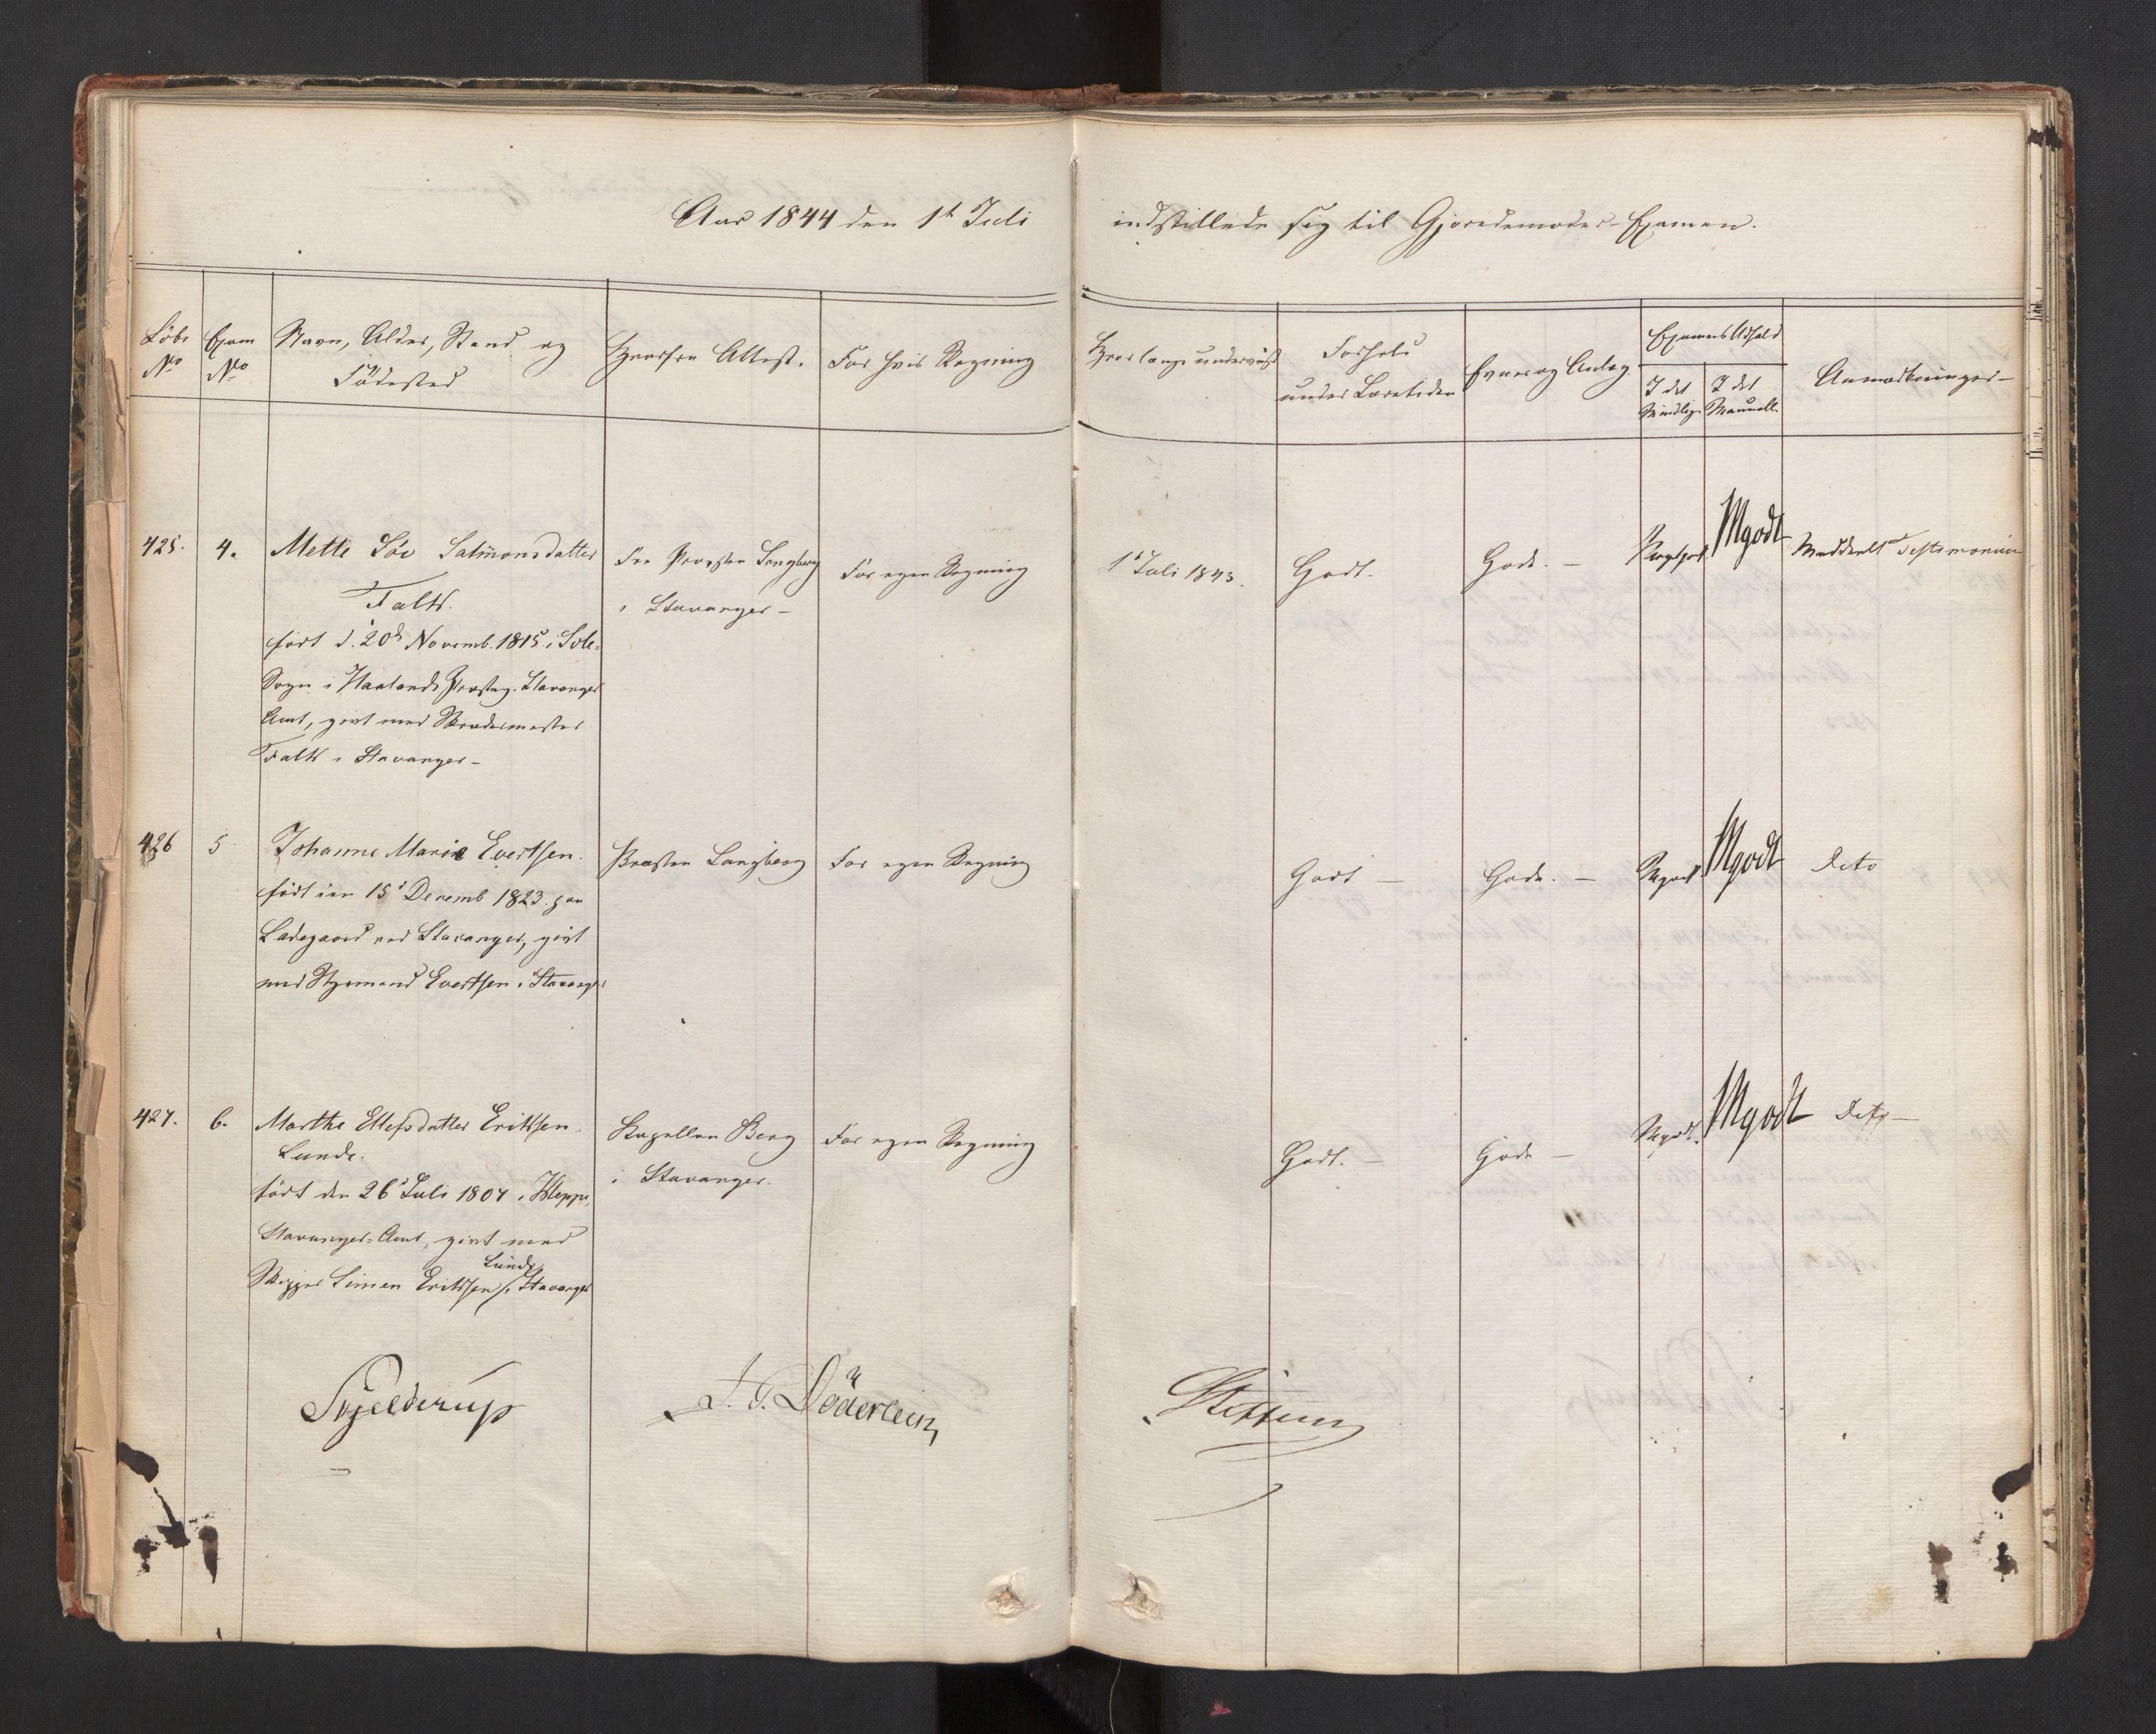 Aar 1844 den 1t Juli indstillede sig til Gjordemoder-Examen.
Löbe No
Exam No
Navn, Alder, Stand og Födested
Hvorfra Attest.
For hvis Regning
Hvor længe underviist
Forhold under Læretiden
Evner og Anlæg.
Examens Udfald
I det Mundtlige
I det Manuelle
Anmærkninger
425.
4.
Mette Sör Salmonsdatter
Falk.
född d. 20de Novemb. 1815 i Sole-
Sogn i Haalands Præsteg. Stavanger
Amt, givt med Skrædermester
Falk i Stavanger
Fra Provsten Langberg
i Stavanger
For egen Regning
1t Juli 1843.
Godt.
Gode.
Mgodt
Mgodt
Meddeelt Testimonium
426
5
Johanne Marie Evertsen.
född den 15d Decemb 1823 paa
Ladegaard ved Stavanger, givt
med Styrmand Evertsen i Stavanger
Provsten Langberg
For egen Regning
Godt
Gode.
Mgodt
Mgodt
Dito
427.
6.
Marthe Ellefsdatter Eriksen
Lunde.
född den 26d Juli 1807 i Kleppe,
Stavanger-Amt, givt med
Skipper Simen Eriksen Lunde i Stavanger
Kapellan Berg
i Stavanger.
For egen Regning
Godt.
Gode
Mgodt.
Mgodt
Dito
Skjelderup
J. G. Döderlein
Steffens